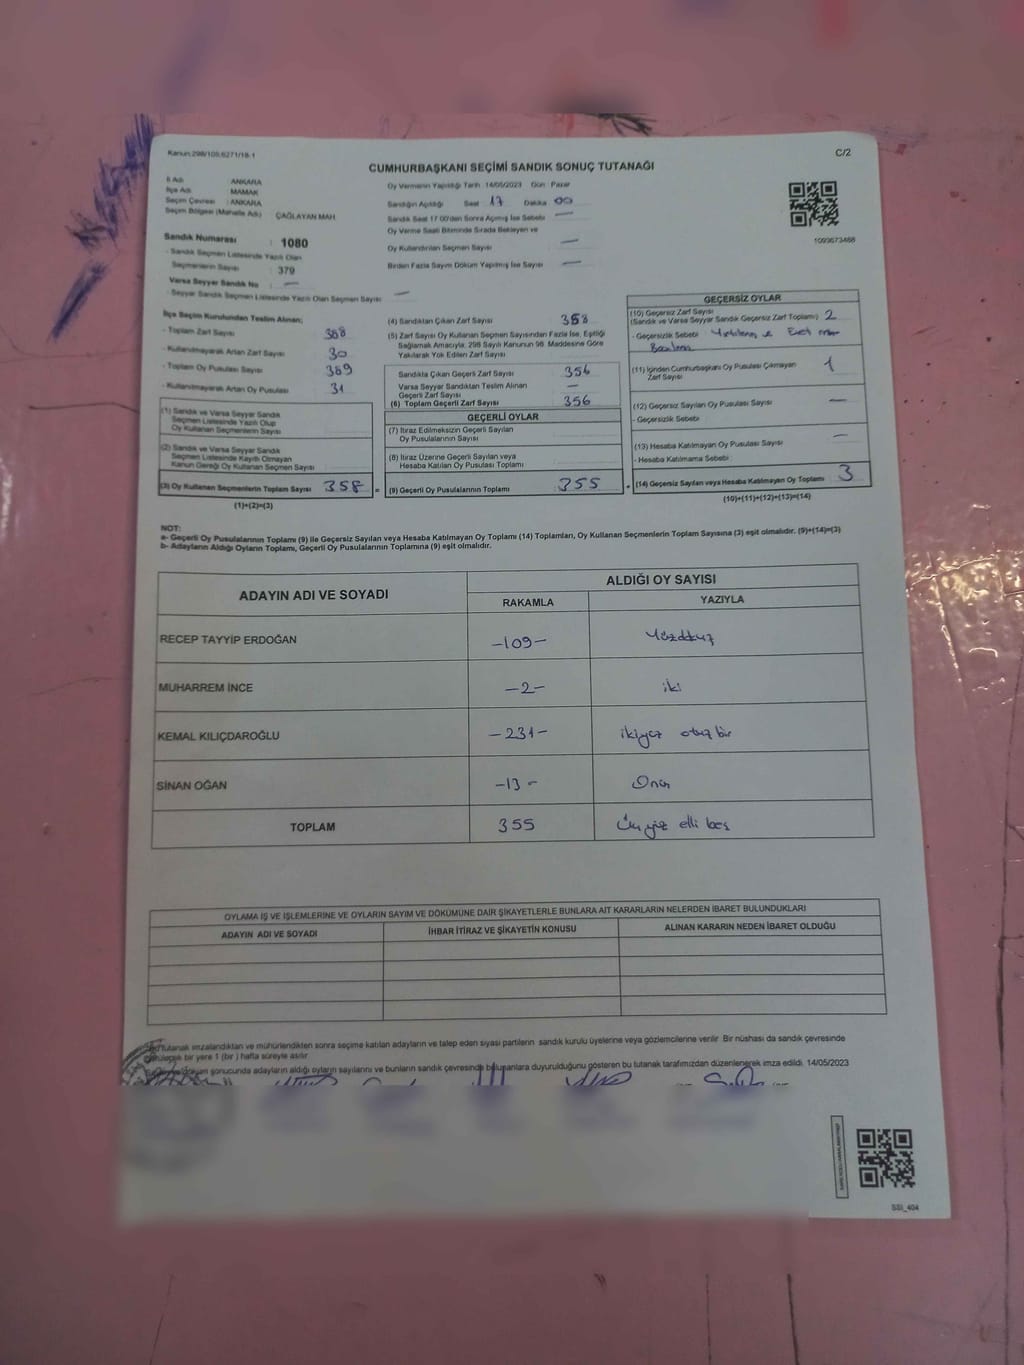 Kanun:298/105,6271/18-1
C/2
CUMHURBAŞKANI SEÇİMİ SANDIK SONUÇ TUTANAĞI
İl Adı : ANKARA
İlçe Adı : MAMAK
Seçim Çevresi : ANKARA
Seçim Bölgesi (Mahalle Adı) : ÇAĞLAYAN MAH.
Sandık Numarası : 1080
- Sandık Seçmen Listesinde Yazılı Olan
Seçmenlerin Sayısı : 379
Varsa Seyyar Sandık No : —
- Seyyar Sandık Seçmen Listesinde Yazılı Olan Seçmen Sayısı : —
Oy Vermenin Yapıldığı Tarih :14/05/2023 Gün : Pazar
Sandığın Açıldığı Saat 17 Dakika 00
Sandık Saat 17.00'den Sonra Açılmış İse Sebebi —
Oy Verme Saati Bitiminde Sırada Bekleyen ve
Oy Kullandırılan Seçmen Sayısı —
Birden Fazla Sayım Döküm Yapılmış İse Sayısı —
1093673488
İlçe Seçim Kurulundan Teslim Alınan;
- Toplam Zarf Sayısı 388
- Kullanılmayarak Artan Zarf Sayısı 30
- Toplam Oy Pusulası Sayısı 389
- Kullanılmayarak Artan Oy Pusulası 31
(1) Sandık ve Varsa Seyyar Sandık
Seçmen Listesinde Yazılı Olup
Oy Kullanan Seçmenlerin Sayısı
(2) Sandık ve Varsa Seyyar Sandık
Seçmen Listesinde Kayıtlı Olmayan
Kanun Gereği Oy Kullanan Seçmen Sayısı
(3) Oy Kullanan Seçmenlerin Toplam Sayısı 358 =
(1)+(2)=(3)
(4) Sandıktan Çıkan Zarf Sayısı 358
(5) Zarf Sayısı Oy Kullanan Seçmen Sayısından Fazla İse, Eşitliği
Sağlamak Amacıyla, 298 Sayılı Kanunun 98. Maddesine Göre
Yakılarak Yok Edilen Zarf Sayısı
Sandıkta Çıkan Geçerli Zarf Sayısı 356
Varsa Seyyar Sandıktan Teslim Alınan
Geçerli Zarf Sayısı —
(6) Toplam Geçerli Zarf Sayısı 356
GEÇERLİ OYLAR
(7) İtiraz Edilmeksizin Geçerli Sayılan
Oy Pusulalarının Sayısı
(8) İtiraz Üzerine Geçerli Sayılan veya
Hesaba Katılan Oy Pusulası Toplamı
(9) Geçerli Oy Pusulalarının Toplamı 355 +
GEÇERSİZ OYLAR
(10) Geçersiz Zarf Sayısı
(Sandık ve Varsa Seyyar Sandık Geçersiz Zarf Toplamı) 2
- Geçersizlik Sebebi : ve Evet
(11) İçinden Cumhurbaşkanı Oy Pusulası Çıkmayan
Zarf Sayısı 1
(12) Geçersiz Sayılan Oy Pusulası Sayısı —
- Geçersizlik Sebebi :
(13) Hesaba Katılmayan Oy Pusulası Sayısı —
- Hesaba Katılmama Sebebi :
(14) Geçersiz Sayılan veya Hesaba Katılmayan Oy Toplamı 3
(10)+(11)+(12)+(13)=(14)
NOT:
a- Geçerli Oy Pusulalarının Toplamı (9) ile Geçersiz Sayılan veya Hesaba Katılmayan Oy Toplamı (14) Toplamları, Oy Kullanan Seçmenlerin Toplam Sayısına (3) eşit olmalıdır. (9)+(14)=(3)
b- Adayların Aldığı Oyların Toplamı, Geçerli Oy Pusulalarının Toplamına (9) eşit olmalıdır.
ADAYIN ADI VE SOYADI
ALDIĞI OY SAYISI
RAKAMLA YAZIYLA
RECEP TAYYİP ERDOĞAN -109- Yüzdokuz
MUHARREM İNCE -2- iki
KEMAL KILIÇDAROĞLU -231- ikiyüz otuz bir
SİNAN OĞAN -13-
TOPLAM 355 Üçyüz elli beş
OYLAMA İŞ VE İŞLEMLERİNE VE OYLARIN SAYIM VE DÖKÜMÜNE DAİR ŞİKAYETLERLE BUNLARA AİT KARARLARIN NELERDEN İBARET BULUNDUKLARI
ADAYIN ADI VE SOYADI İHBAR İTİRAZ VE ŞİKAYETİN KONUSU ALINAN KARARIN NEDEN İBARET OLDUĞU
tutanak imzalandıktan ve mühürlendikten sonra seçime katılan adayların ve talep eden siyasi partilerin sandık kurulu üyelerine veya gözlemcilerine verilir. Bir nüshası da sandık çevresinde
bir yere 1 (bir ) hafta süreyle asılır.
sonucunda adayların aldığı oyların sayılarını ve bunların sandık çevresinde bulunanlara duyurulduğunu gösteren bu tutanak tarafımızdan düzenlenerek imza edildi. 14/05/2023
SSI_404